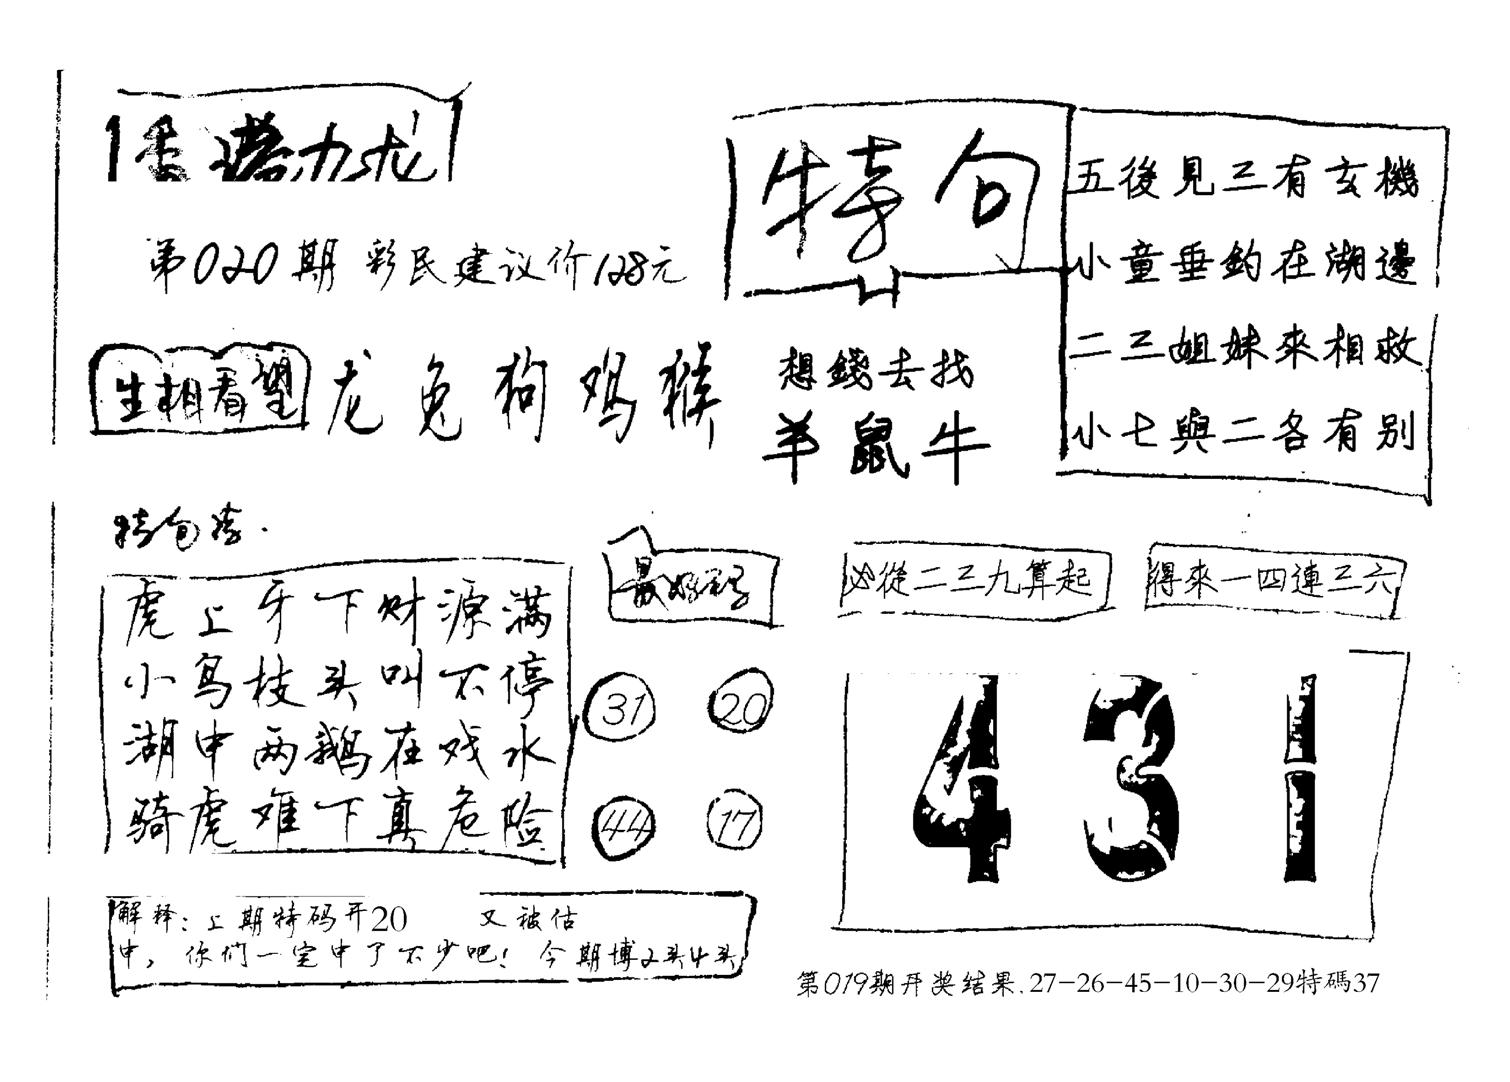 第020期 彩民建议价128元
特句
五後見三有玄機
小童垂釣在湖邊
二三姐妹來相救
小七與二各有别
生相看望 龙兔狗鸡猴
想錢去找
羊鼠牛
特句诗.
虎上牙下财源满
小鸟枝头叫不停
湖中两鹅在戏水
骑虎难下真危险
最好码
31 20
44 17
必從二三九算起
得來一四連三六
431
解释:上期特码开20 又被估
中,你们一定中了不少吧!今期博2头4头
第019期开奖结果.27-26-45-10-30-29特碼37